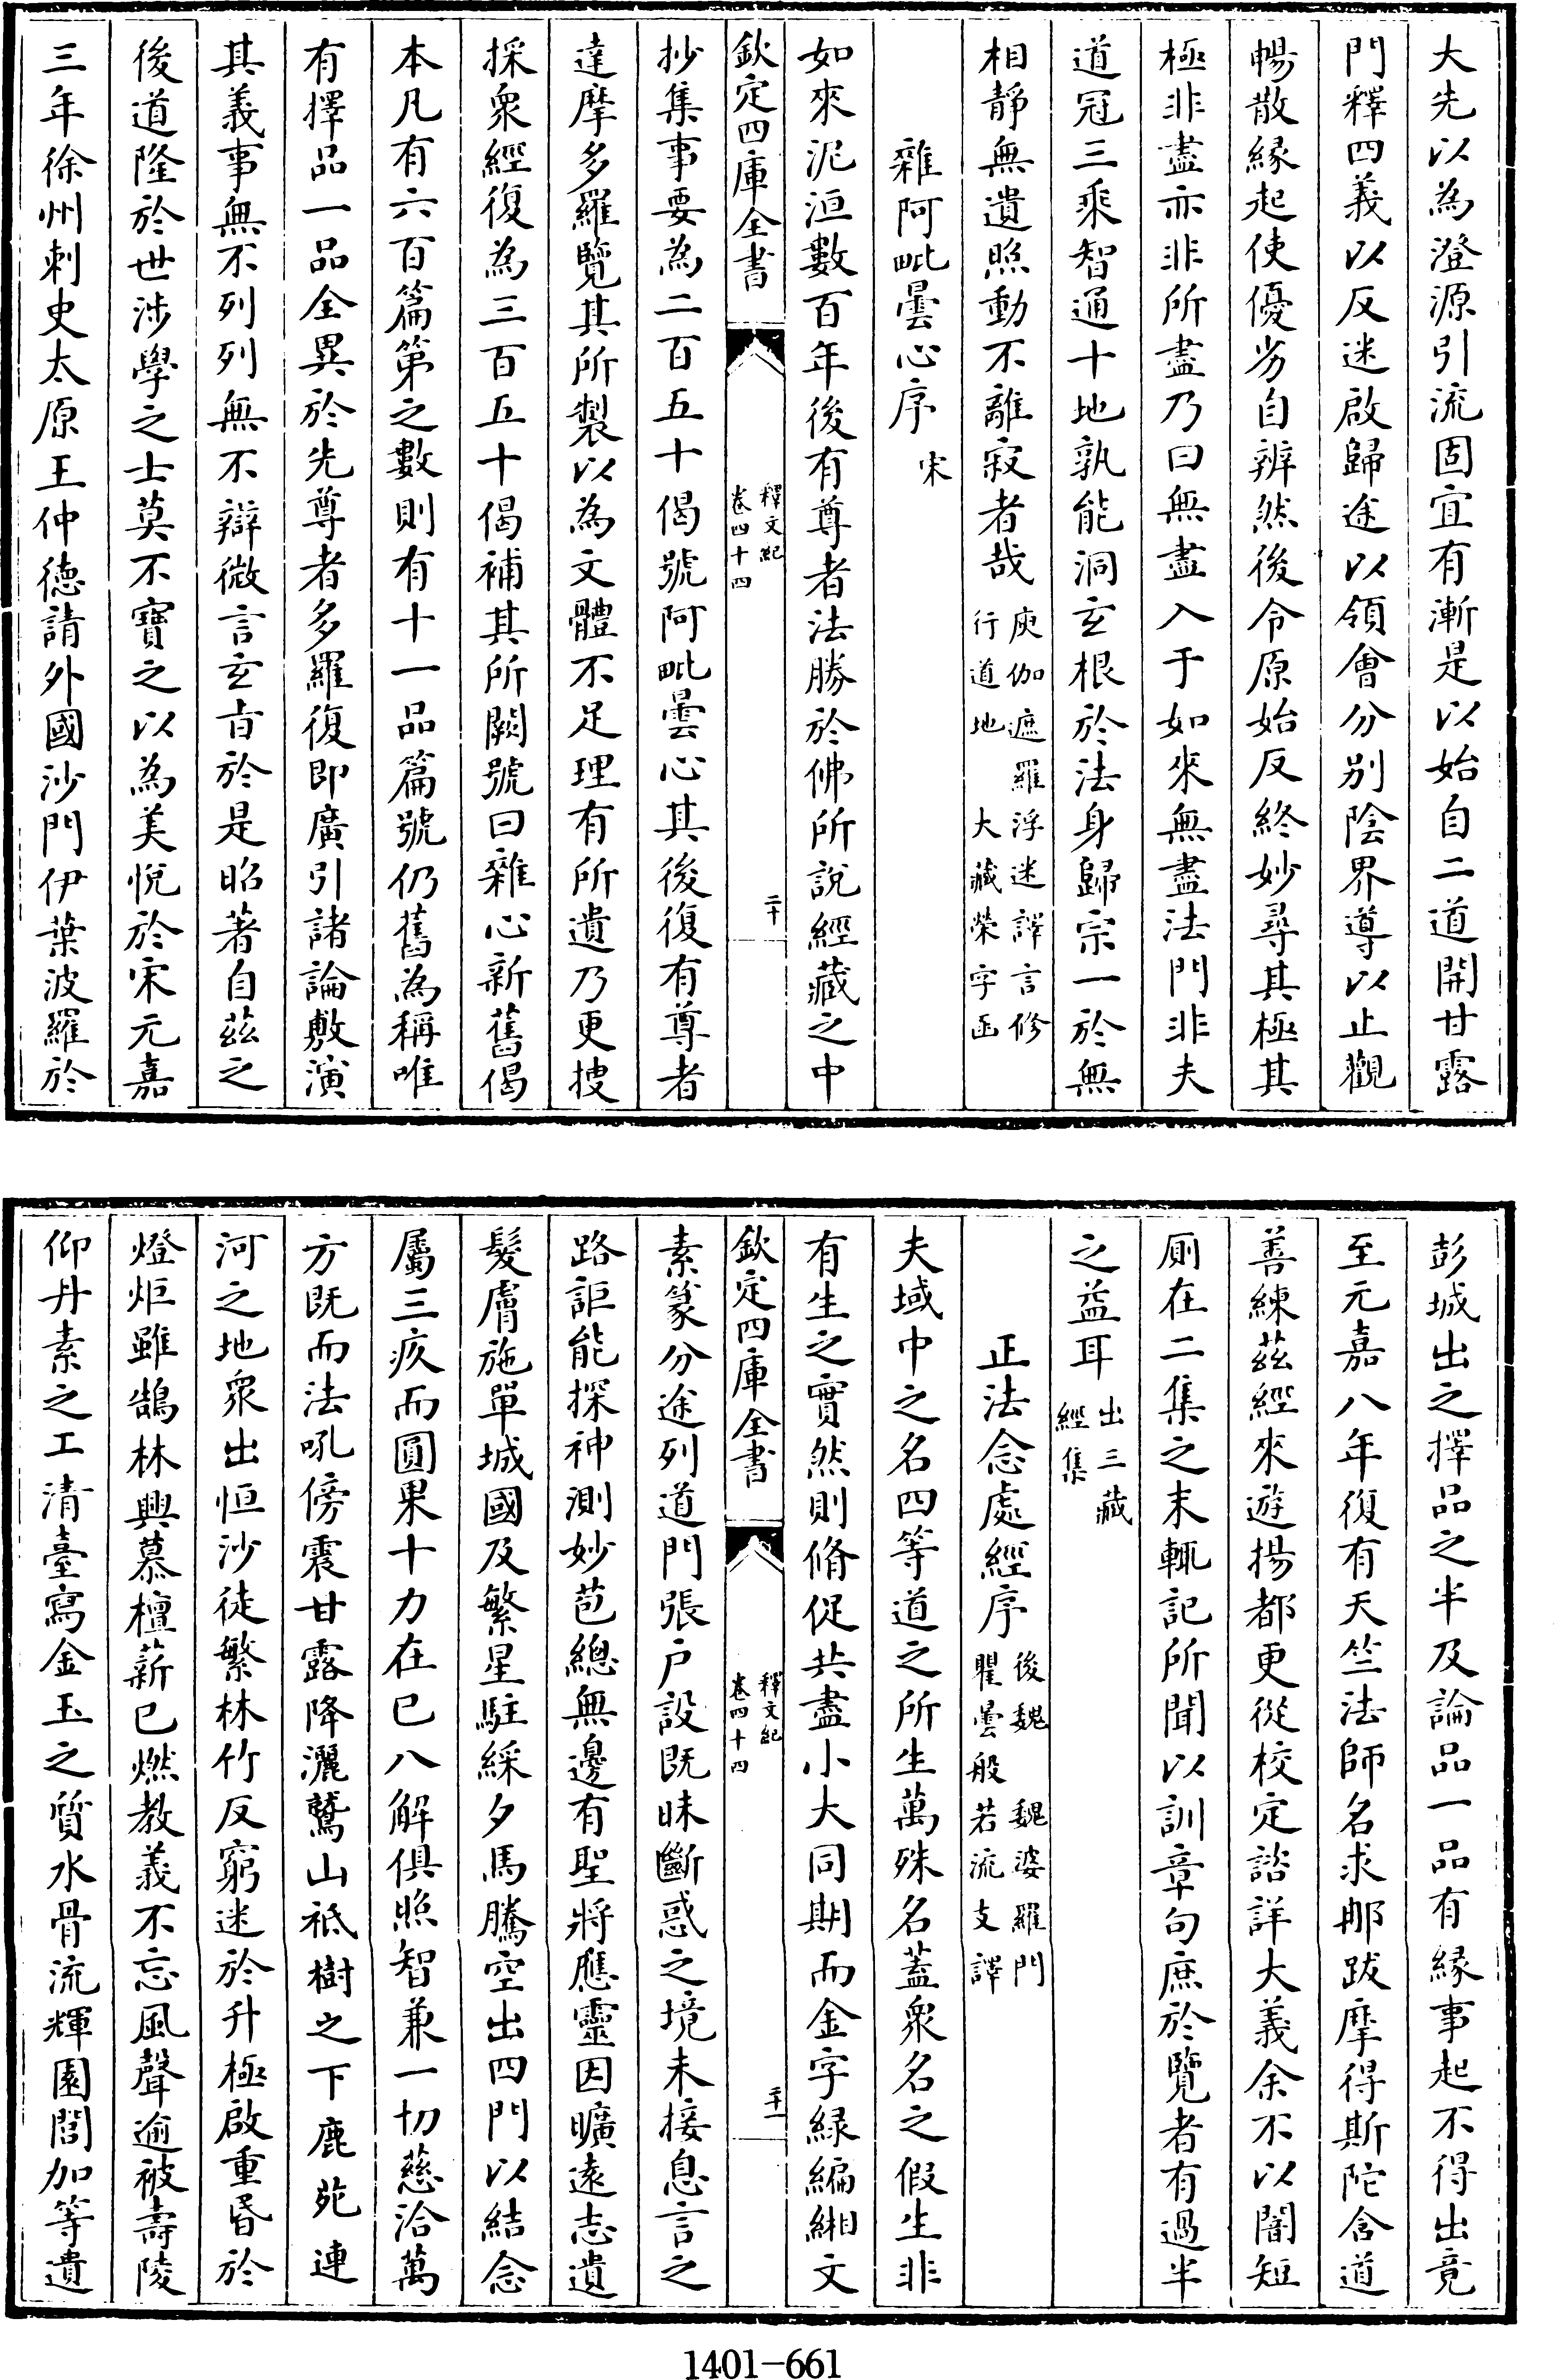 大先以為澄源引流固宜有漸是以始自二道開甘露
門釋四義以反迷啟歸途以領會分別陰界導以止觀
暢散緣起使優劣自辨然後令原始反終妙尋其極其
極非盡亦非所盡乃曰無盡入于如來無盡法門非夫
道冠三乘智通十地孰能洞玄根於法身歸宗一於無
相靜無遺照動不離寂者哉庾伽遮羅浮迷譯言修
行道地 大藏榮字函
雜阿毗曇心序 宋
如來泥洹數百年後有尊者法勝於佛所說經藏之中
欽定四庫全書 釋文紀 卷四十四 二十
抄集事要為二百五十偈號阿毗曇心其後復有尊者
達摩多羅覽其所製以為文體不足理有所遺乃更捜
採衆經復為三百五十偈補其所闕號曰雜心新舊偈
本凡有六百篇第之數則有十一品篇號仍舊為稱唯
有擇品一品全異於先尊者多羅復即廣引諸論敷演
其義事無不列列無不辯微言玄㫖於是昭著自茲之
後道隆於世涉學之士莫不寶之以為美悅於宋元嘉
三年徐州刺史太原王仲德請外國沙門伊葉波羅於
彭城出之擇品之半及論品一品有緣事起不得出竟
至元嘉八年復有天竺法師名求那跋摩得斯陀含道
善練茲經來遊揚都更從校定諮詳大義余不以闇短
厠在二集之末輒記所聞以訓章句庶於覽者有過半
之益耳出三藏
經集
正法念處經序後魏 魏婆羅門
瞿曇般若流支譯
夫域中之名四等道之所生萬殊名蓋衆名之假生非
有生之實然則脩促共盡小大同期而金字緑編緗文
欽定四庫全書 釋文紀 卷四十四 二十一
素篆分途列道門張户設既昧斷惑之境未接息言之
路詎能探神測妙苞總無邊有聖將應靈因曠遠志遺
髮膚施單城國及繁星駐綵夕馬騰空出四門以結念
屬三疚而圓果十力在已八解俱照智兼一切慈洽萬
方既而法吼傍震甘露降灑鷲山祇樹之下鹿苑連
河之地衆出恒沙徒繁林竹反窮迷於升極啟重昏於
燈炬雖鵠林興慕檀薪已燃教義不忘風聲逾被壽陵
仰丹素之工清臺寫金玉之質水骨流輝園閣加等遺
1401-661